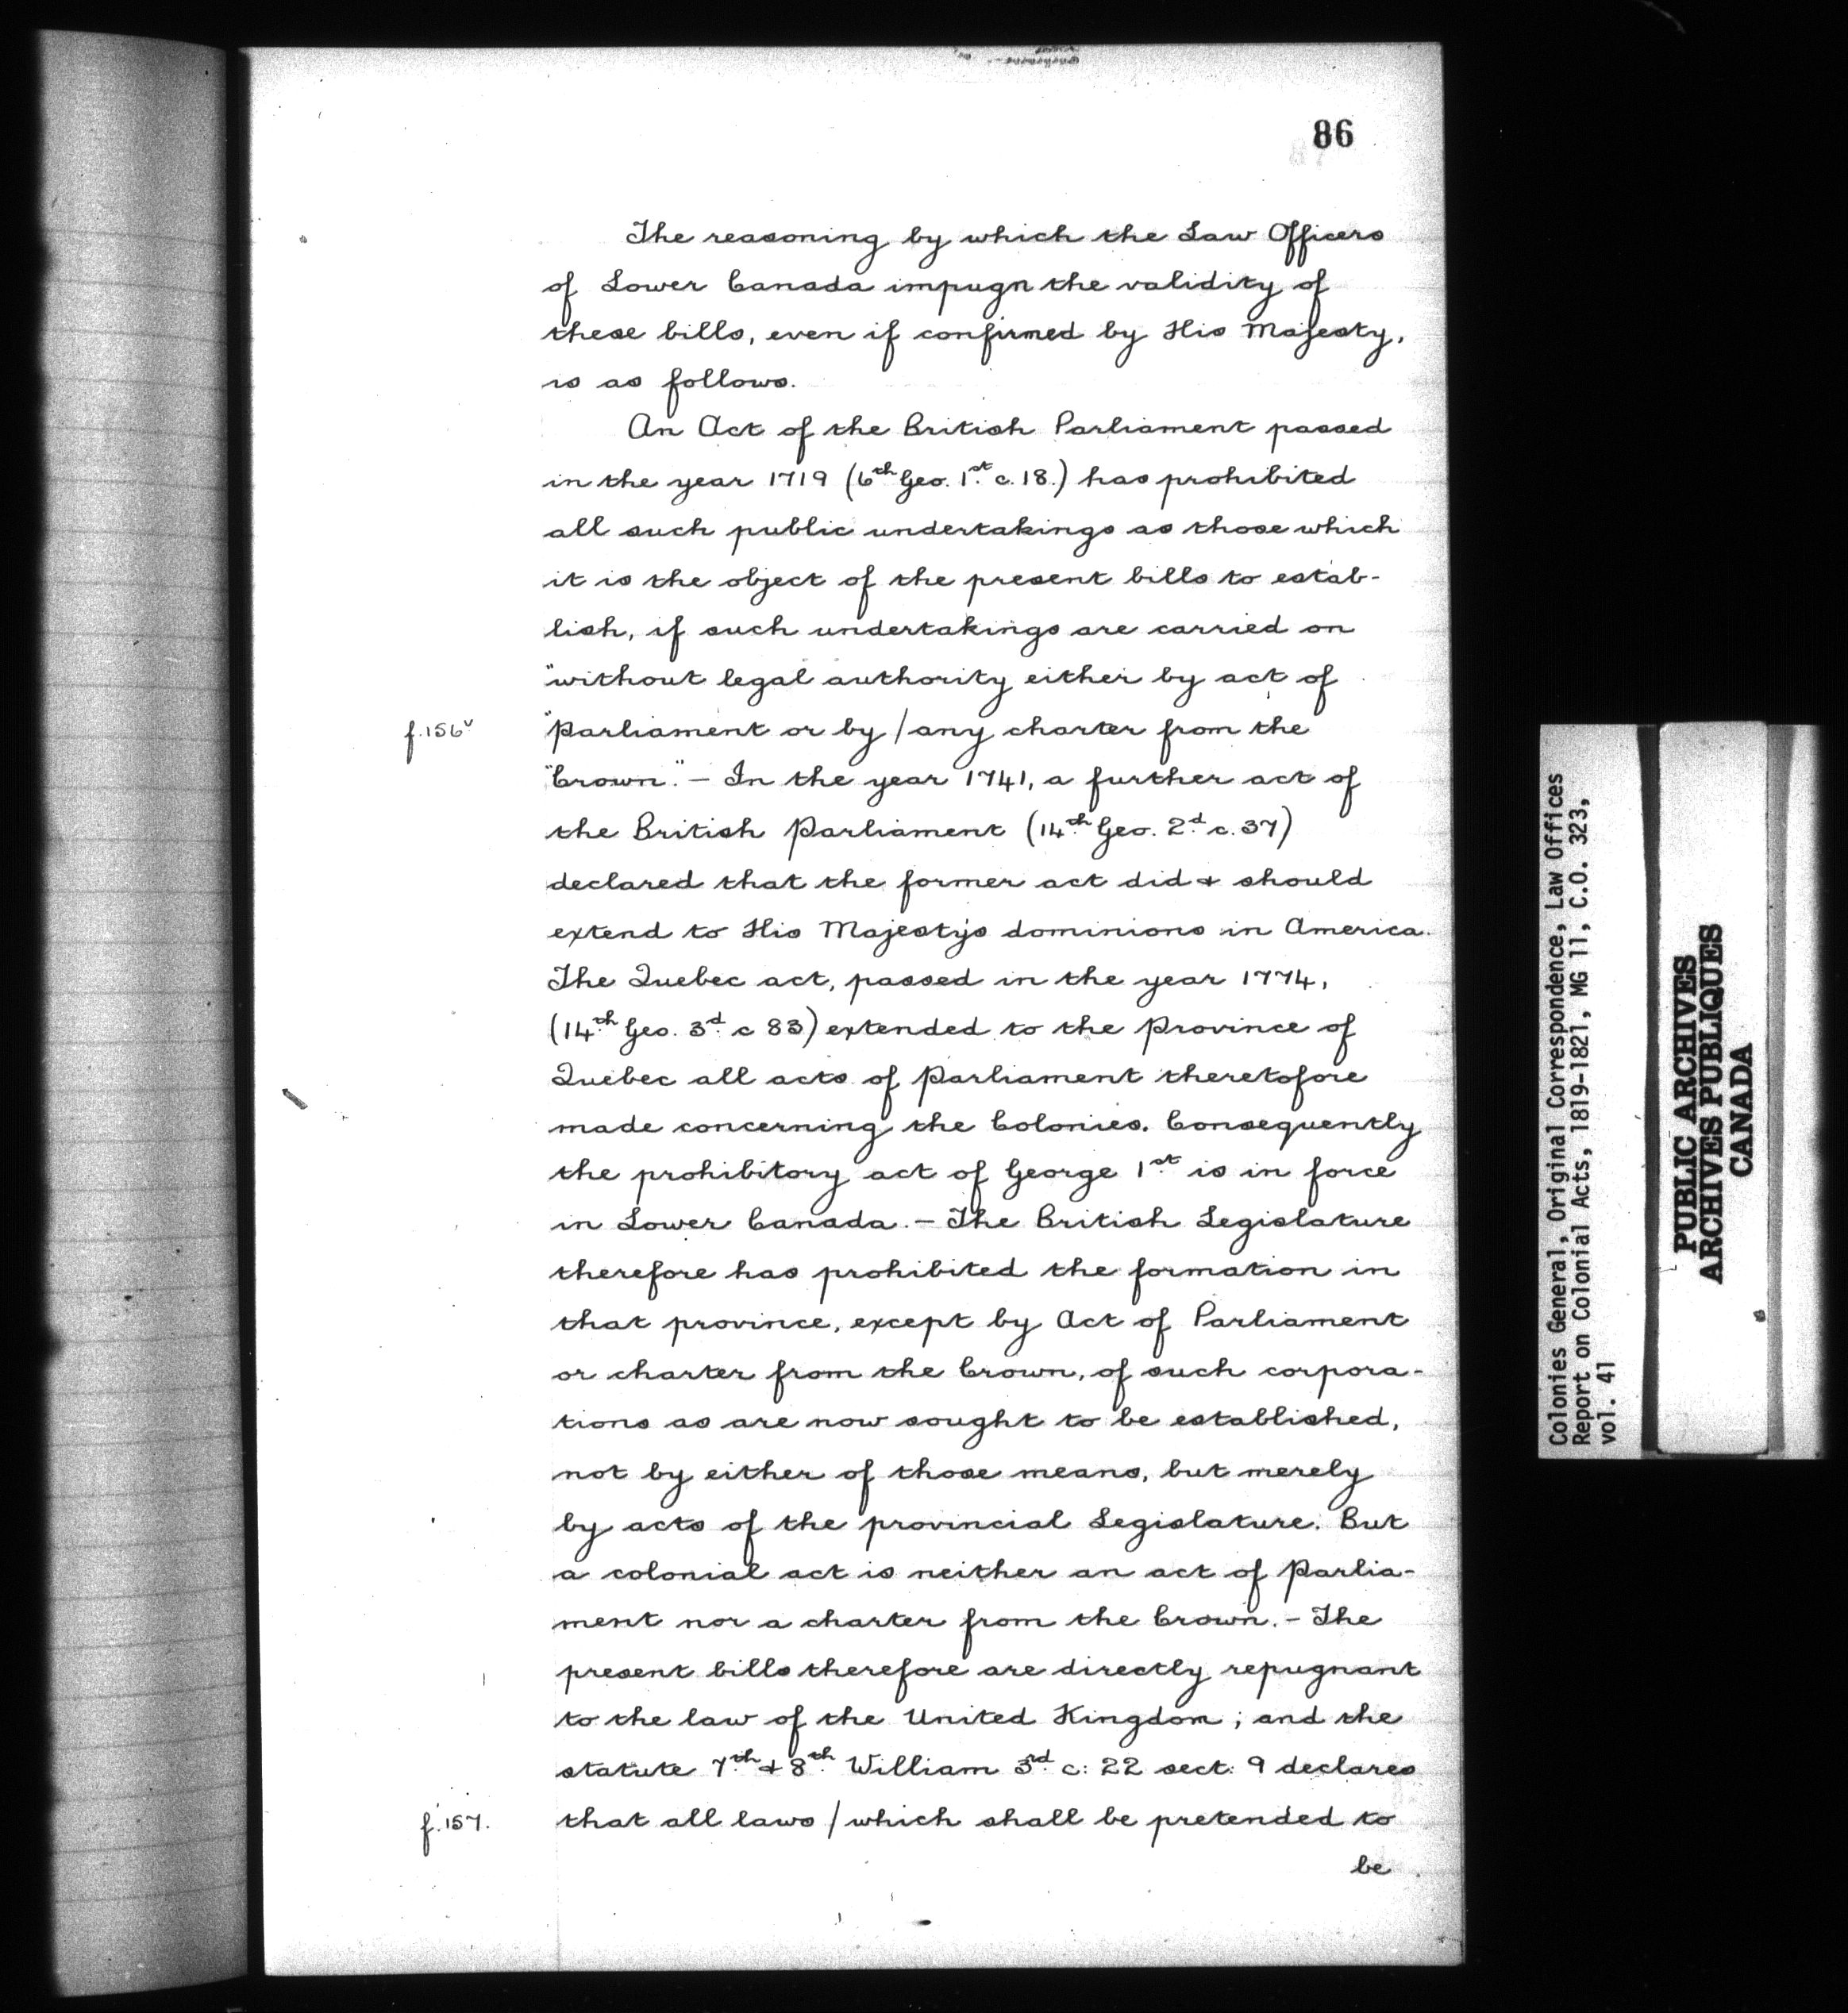 86
The reasoning by which the Law Officers
of Lower Canada impugn the validity of
these bills, even if confirmed by His Majesty,
is as follows.
An Act of the British Parliament passed
in the year 1719 (6th Geo. 1st c. 18.) has prohibited
all such public undertakings as those which
it is the object of the present bills to estab-
lish, if such undertakings are carried on
"without legal authority either by act of
f.156v "Parliament or by / any charter from the
"Crown." – In the year 1741, a further act of
the British Parliament (14th Geo. 2d c. 37)
declared that the former act did & should
extend to His Majesty's dominions in America.
The Quebec act, passed in the year 1774,
(14th Geo. 3d c 83) extended to the Province of
Quebec all acts of Parliament theretofore
made concerning the Colonies. Consequently
the prohibitory act of George 1st is in force
in Lower Canada. – The British Legislature
therefore has prohibited the formation in
that province, except by Act of Parliament
or charter from the Crown, of such corpora-
tions as are now sought to be established,
not by either of those means, but merely
by acts of the provincial Legislature. But
a colonial act is neither an act of Parlia-
ment nor a charter from the Crown. – The
present bills therefore are directly repugnant
to the law of the United Kingdom; and the
statute 7th & 8th William 3rd c: 22 sect: 9 declares
f.157. that all laws / which shall be pretended to
be
Colonies General, Original Correspondence, Law Offices
Report on Colonial Acts, 1819-1821, MG 11, C.O. 323,
vol. 41
PUBLIC ARCHIVES
ARCHIVES PUBLIQUES
CANADA